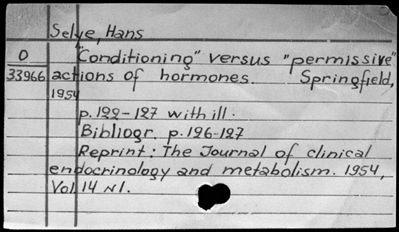 Selye, Hans
0 "Conditioning" versus "permissive"
33966 actions of hormones. Springfield,
1954
p. 122-127 with ill.
Bibliogr. p. 126-127
Reprint: The Journal of clinical
endocrinology and metabolism. 1954,
Vol 14 N1.